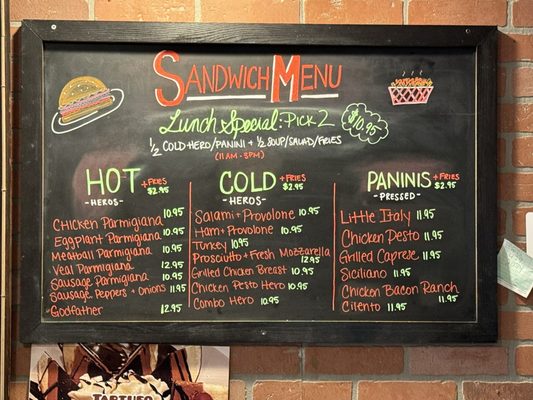 SANDWICH MENU
Lunch Special: PICK 2
$10.95
1/2 COLD HERO/PANINI + 1/2 SOUP/SALAD/FRIES
(11AM - 3PM)
HOT + FRIES $2.95
- HEROS -
CHICKEN PARMIGIANA 10.95
EGGPLANT PARMIGIANA 10.95
MEATBALL PARMIGIANA 10.95
VEAL PARMIGIANA 12.95
SAUSAGE PARMIGIANA 10.95
SAUSAGE, PEPPERS + ONIONS 11.95
GODFATHER 12.95
COLD + FRIES $2.95
- HEROS -
SALAMI + PROVOLONE 10.95
HAM + PROVOLONE 10.95
TURKEY 10.95
PROSCIUTTO + FRESH MOZZARELLA 12.95
GRILLED CHICKEN BREAST 10.95
CHICKEN PESTO HERO 10.95
COMBO HERO 10.95
PANINIS + FRIES $2.95
- PRESSED -
LITTLE ITALY 11.95
CHICKEN PESTO 11.95
GRILLED CAPRESE 11.95
SICILIANO 11.95
CHICKEN BACON RANCH 11.95
CILENTO 11.95
TARTUFO